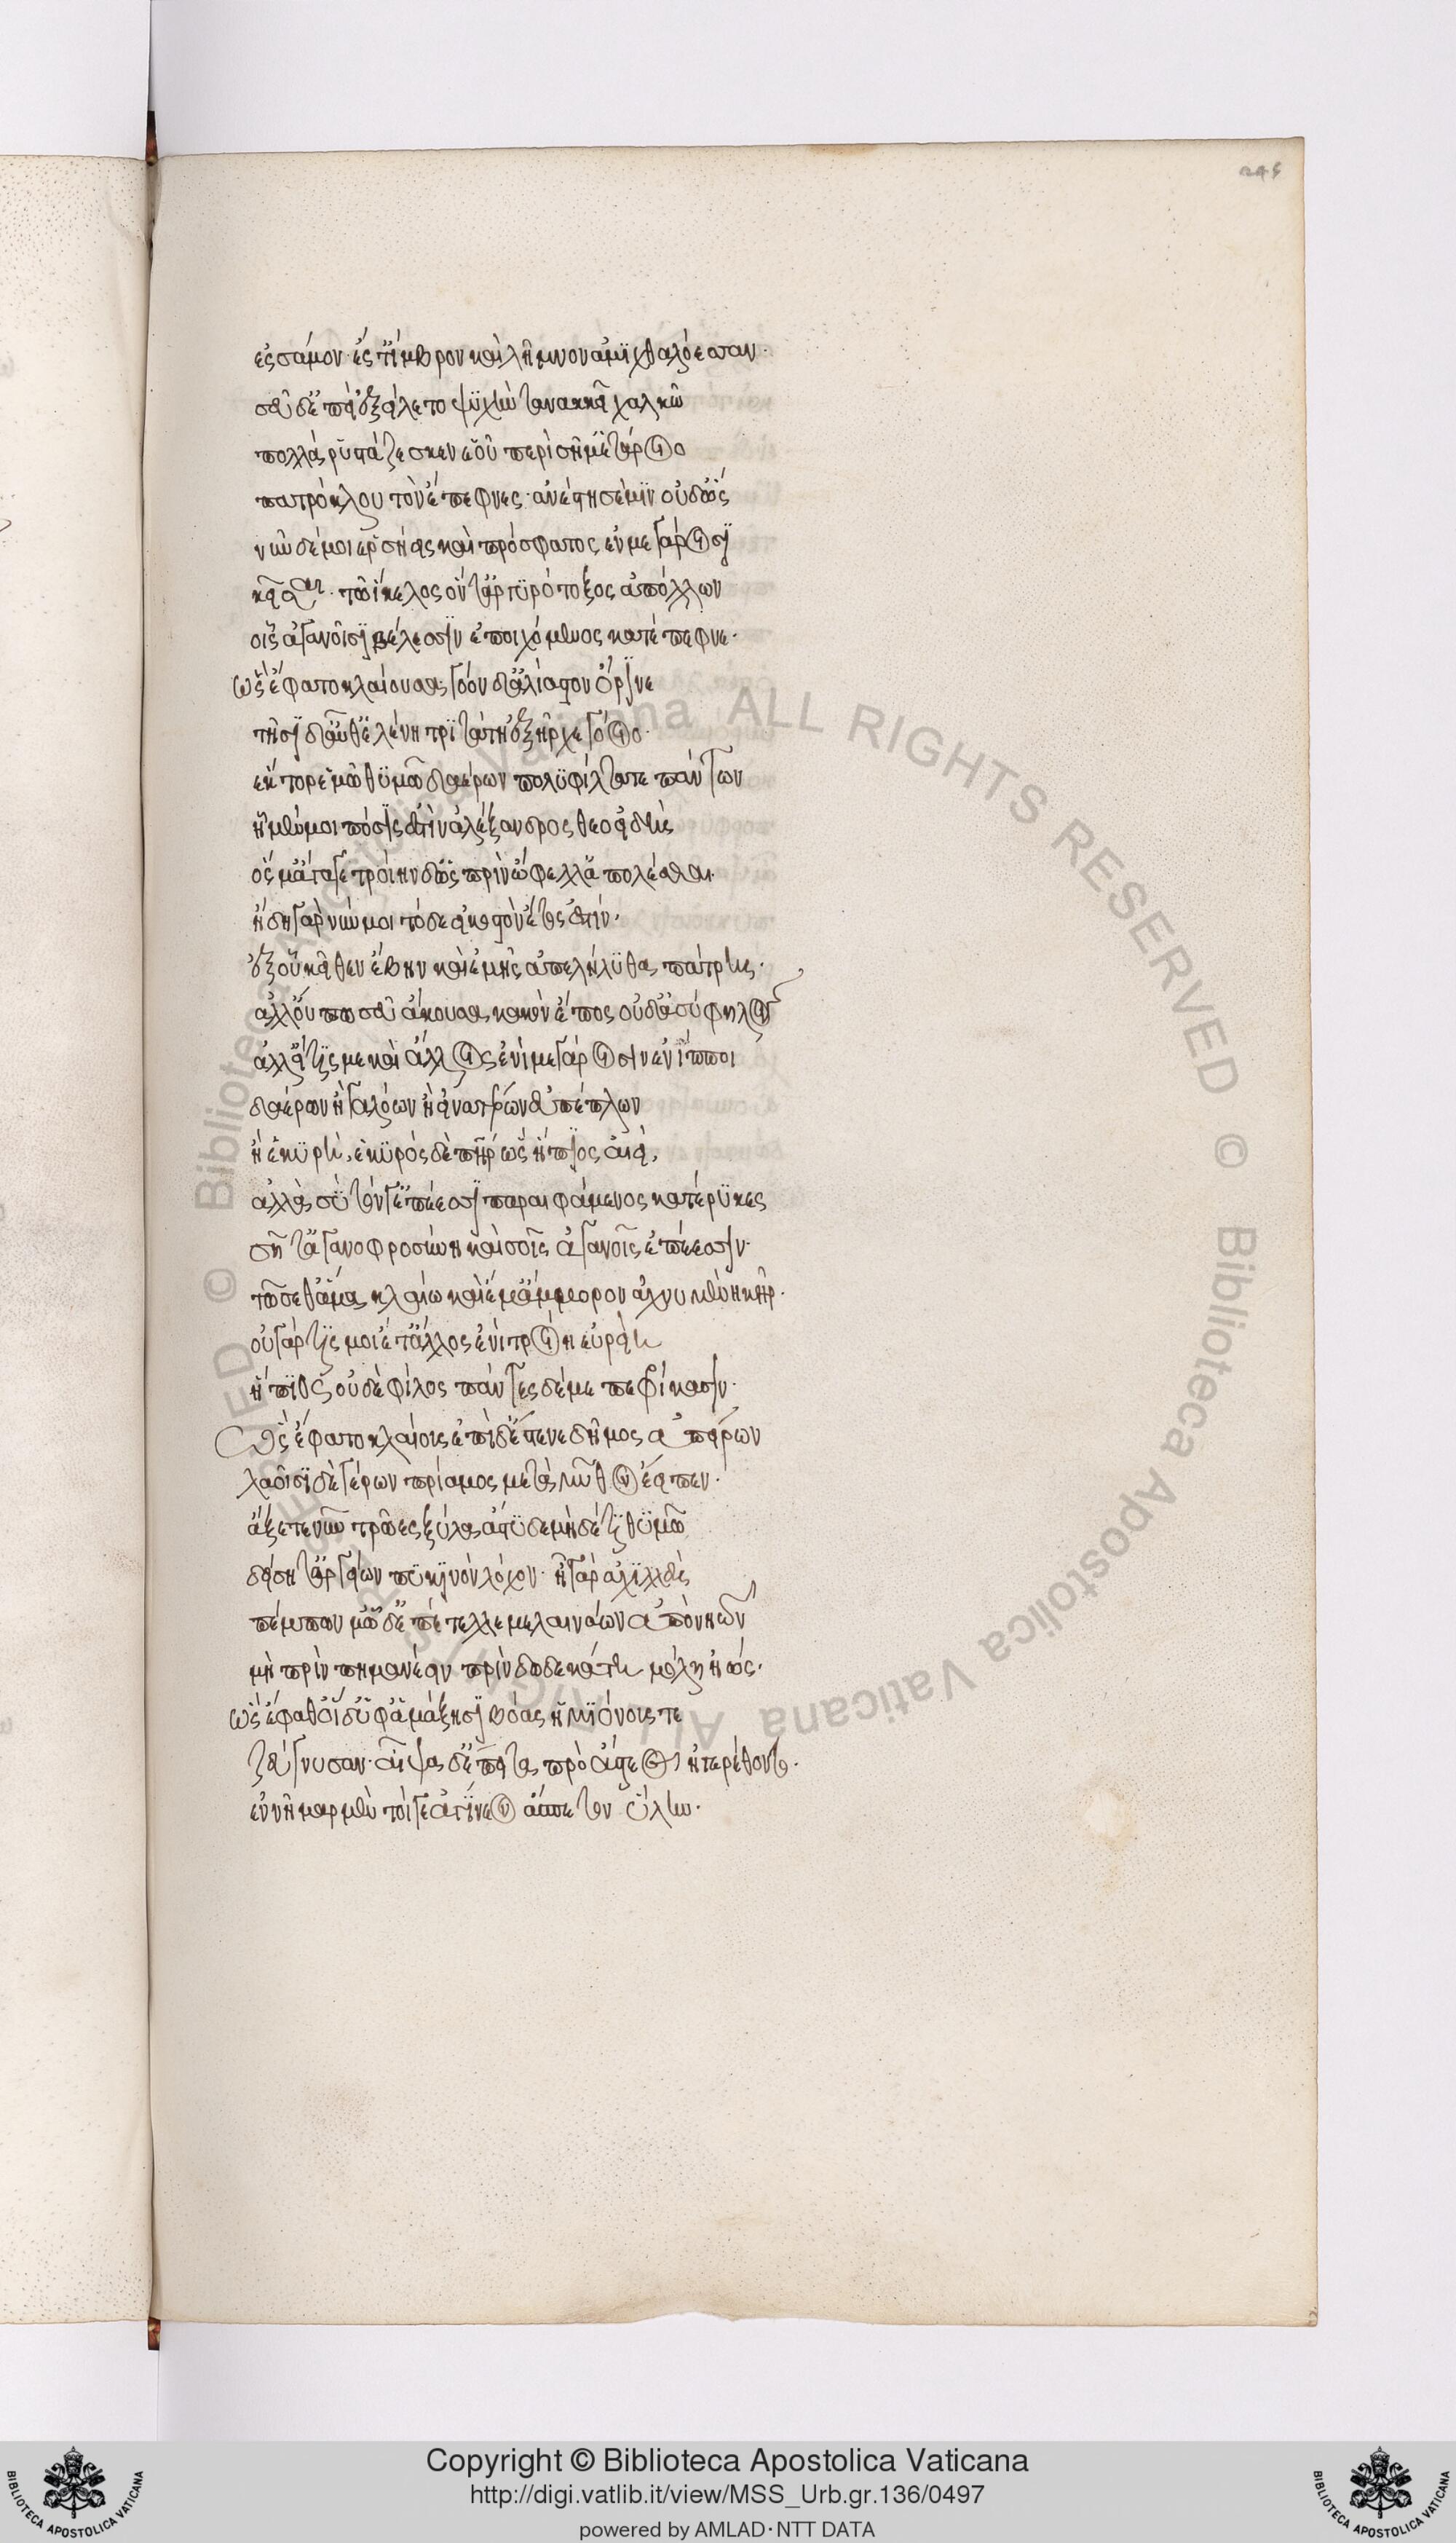 246
ἐς σάμον ἔς τ' ἴμβρον καὶ λῆμνον ἀμιχθαλόεσσαν·
σεῦ δ' ἐπεὶ ἐξείλετο ψυχὴν ταναηκέϊ χαλκῶ
πολλὰ ῥυστάζεσκεν ἑοῦ περὶ σῆμ' ἑτάροιο
πατρόκλου τὸν ἔπεφνες· ἀνέστησε μιν οὐδ' ὥς
νῦν δέ μοι ἑρσήεις καὶ πρόσφατος ἐν μεγάροισι
κεῖσαι· τῶ ἴκελος ὅν τ' ἀργυρότοξος ἀπόλλων
οἷς ἀγανοῖσι βέλεσσιν ἐποιχόμενος κατέπεφνε·
ὣς ἔφατο κλαίουσα· γόον δ' ἀλίαστον ὄρινε
τῆσι δ' ἔπειθ' ἑλένη τριτάτη ἐξῆρχε γόοιο·
ἕκτορ ἐμῶ θυμῶ δαέρων πολὺ φίλτατε πάντων
ἦ μέν μοι πόσις ἐστὶν ἀλέξανδρος θεοειδὴς
ὅς μ' ἄγαγε τροίην δ' ὡς πρὶν ὤφελλ' ἀπολέσθαι·
ἤδη γὰρ νῦν μοι τόδε εἰκοστὸν ἔτος ἐστίν·
ἐξ οὗ κεῖθεν ἔβην καὶ ἐμῆς ἀπελήλυθα πάτρης·
ἀλλ' οὔπω σεῦ ἄκουσα κακὸν ἔπος οὐδ' ἀσύφηλον
ἀλλ' εἴ τις με καὶ ἄλλος ἐνὶ μεγάροισιν ἐνίπτοι
δαέρων ἢ γαλόων ἢ εἰνατέρων εὐπέπλων
ἢ ἑκυρὴ, ἑκυρὸς δὲ πατὴρ ὣς ἤπιος αἰεὶ,
ἀλλὰ σὺ τόν γ' ἐπέεσσι παραιφάμενος κατέρυκες
σῆ τ' ἀγανοφροσύνη καὶ σοῖς ἀγανοῖς ἐπέεσσιν·
τῶ σε θ' ἅμα κλαίω καὶ ἔμ' ἄμμορον ἀχνυμένη κῆρ·
οὐ γάρ τις μοι ἔτ' ἄλλος ἐνὶ τροίη εὐρείη
ἤπιος οὐδὲ φίλος πάντες δέ με πεφρίκασιν·
Ὣς ἔφατο κλαίουσ' ἐπὶ δ' ἔστενε δῆμος ἀπείρων
λαοῖσι δὲ γέρων πρίαμος μετὰ μῦθον ἔειπεν·
ἄξετε νῦν τρῶες ξύλα ἄστυδε μηδέ τι θυμῶ
δείσητ' ἀργείων πυκινὸν λόχον· ἦ γὰρ ἀχιλλεὺς
πέμπων μ' ὧδ' ἐπέτελλε μελαινάων ἀπὸ νηῶν
μὴ πρὶν πημανέειν πρὶν δωδεκάτη μόλῃ ἠώς·
ὣς ἔφαθ' οἱ δ' ὑφ' ἁμάξησι βόας ἡμιόνους τε
ζεύγνυσαν· αἶψα δ' ἔπειτα πρὸ ἄστεος ἠγερέθοντο·
ἐννῆμαρ μὲν τοί γε ἀγίνεον ἄσπετον ὕλην·
Copyright © Biblioteca Apostolica Vaticana
http://digi.vatlib.it/view/MSS_Urb.gr.136/0497
powered by AMLAD·NTT DATA